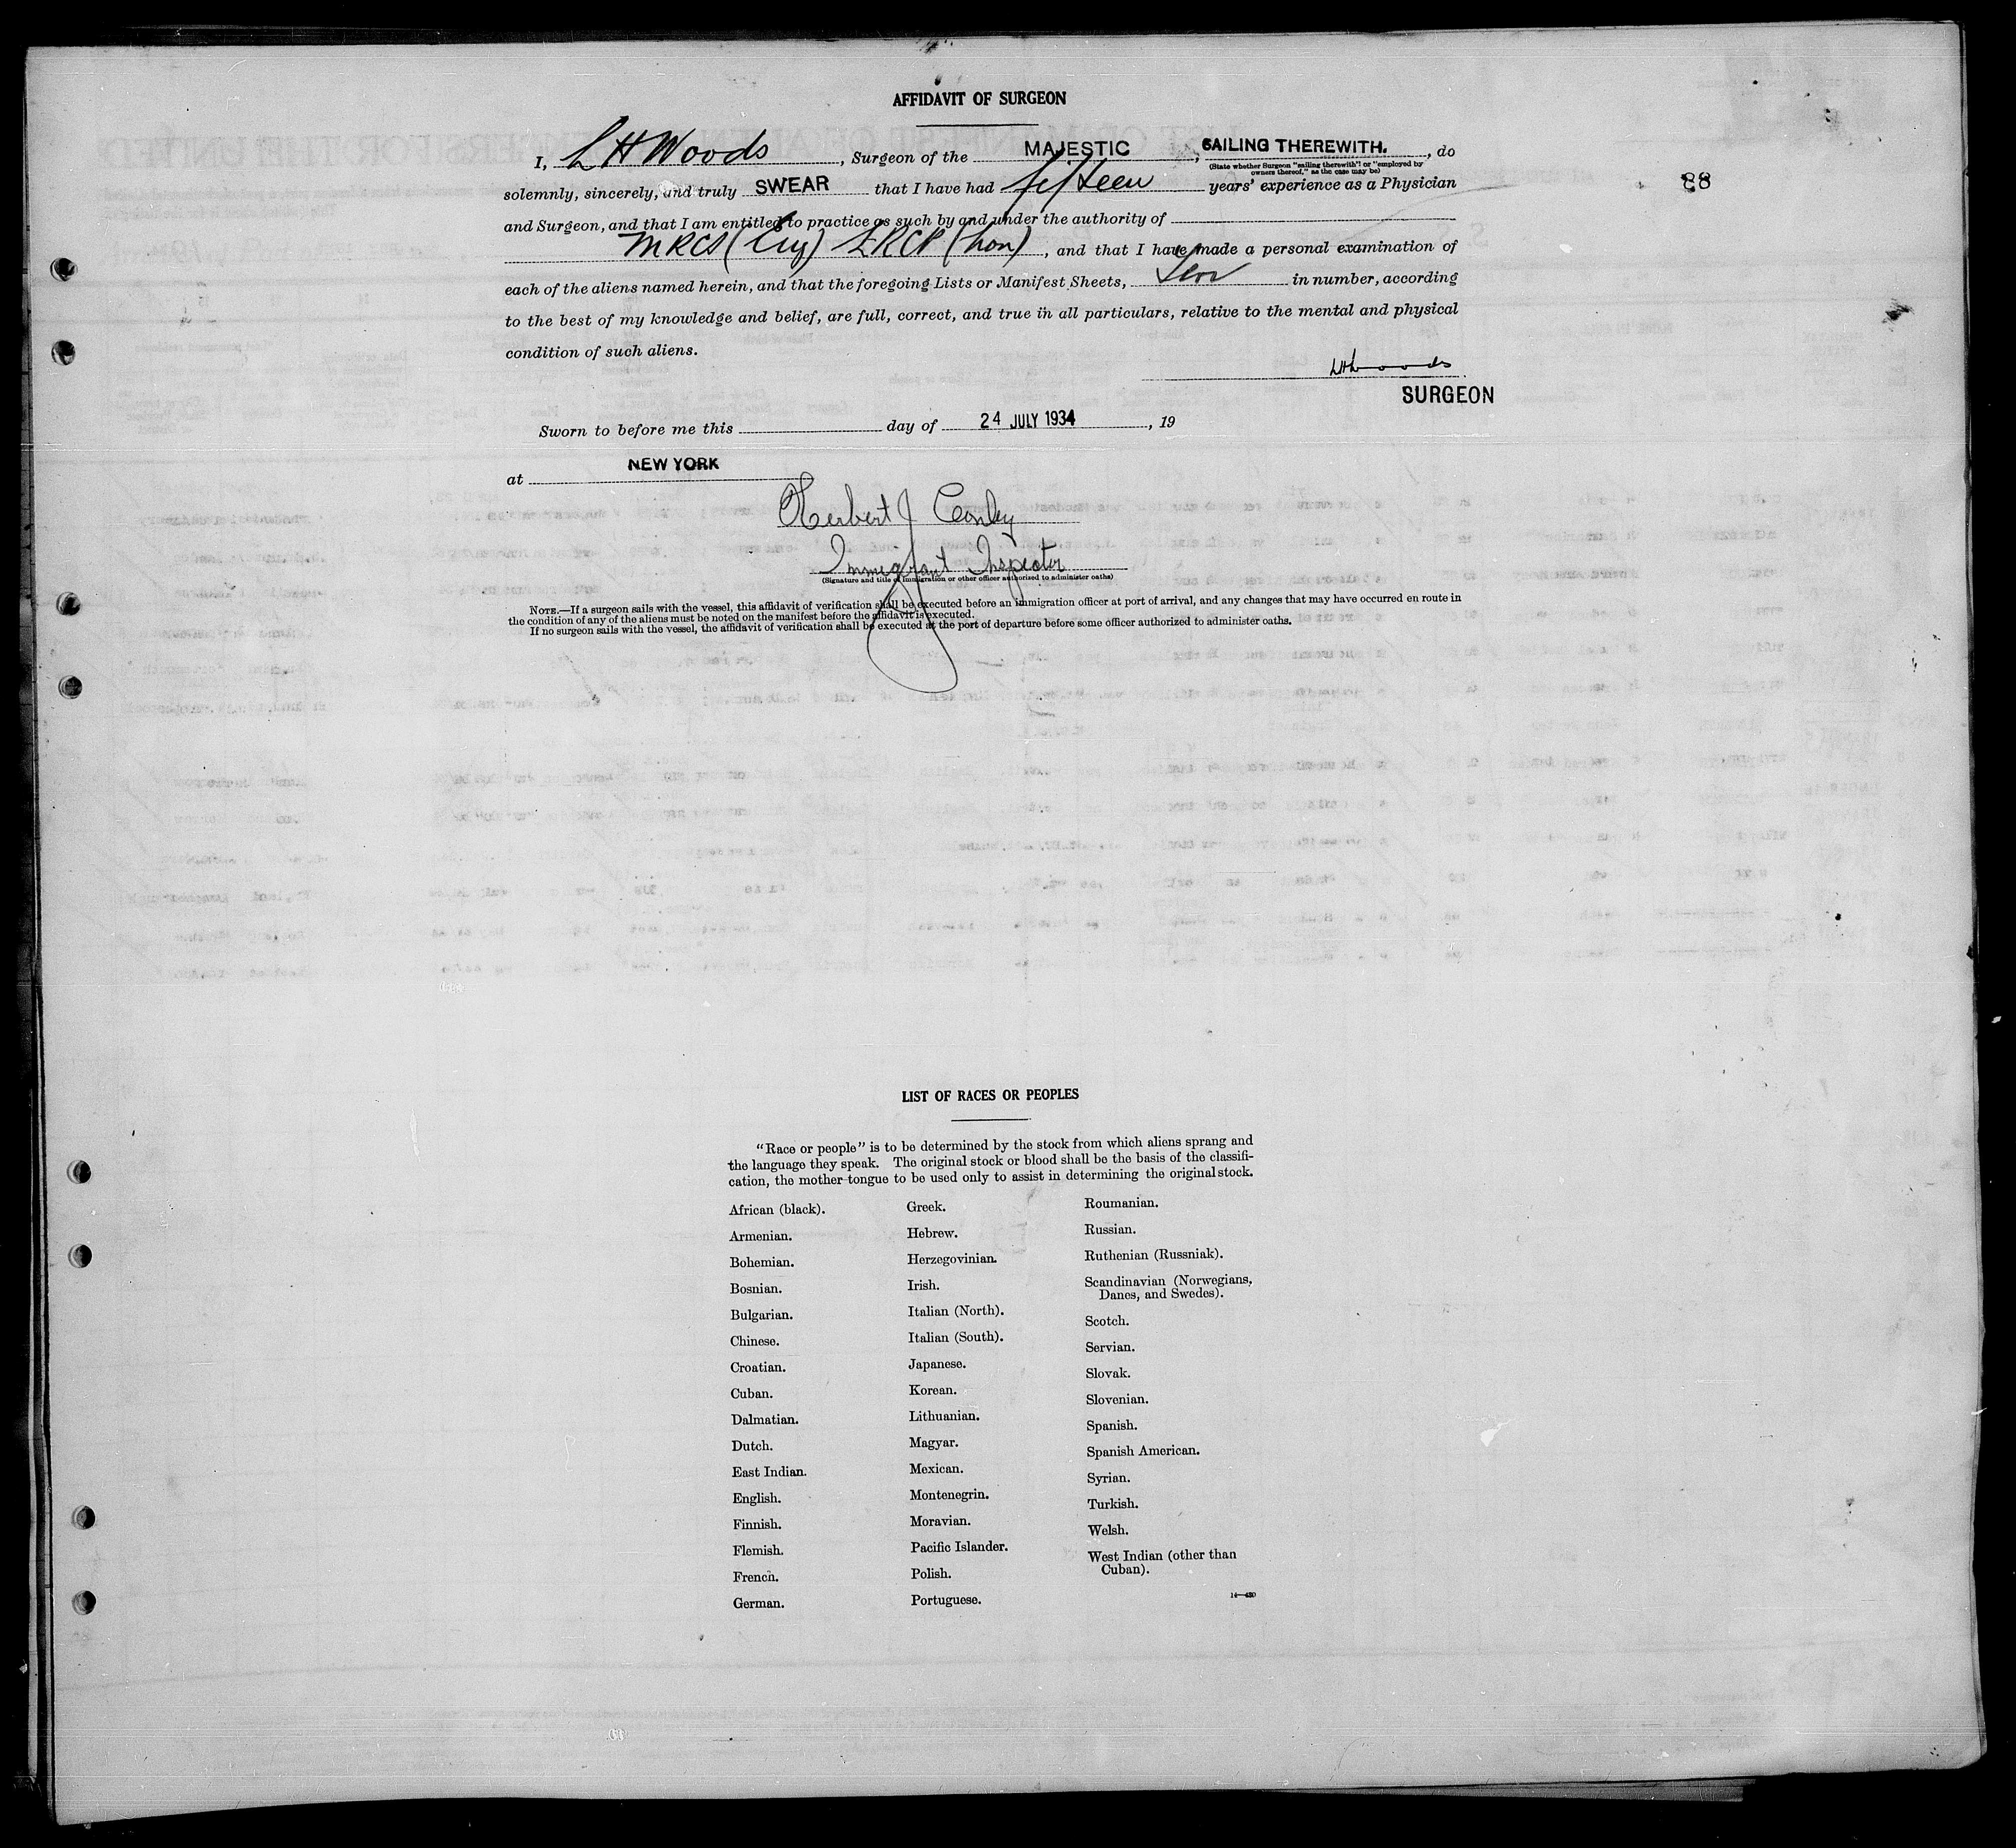 AFFIDAVIT OF SURGEON
I, L H Woods, Surgeon of the MAJESTIC, SAILING THEREWITH., do
(State whether Surgeon "sailing therewith" or "employed by
owners thereof," as the case may be)
88
solemnly, sincerely, and truly SWEAR that I have had fifteen years' experience as a Physician
and Surgeon, and that I am entitled to practice as such by and under the authority of
MRCS (Eng) LRCP (Lon), and that I have made a personal examination of
each of the aliens named herein, and that the foregoing Lists or Manifest Sheets, in number, according
to the best of my knowledge and belief, are full, correct, and true in all particulars, relative to the mental and physical
condition of such aliens.
LHWoods
SURGEON
Sworn to before me this day of 24 JULY 1934, 19
at NEW YORK
Herbert J Conley
Immigrant Inspector
(Signature and title of immigration or other officer authorized to administer oaths)
NOTE.—If a surgeon sails with the vessel, this affidavit of verification shall be executed before an immigration officer at port of arrival, and any changes that may have occurred en route in
the condition of any of the aliens must be noted on the manifest before the affidavit is executed.
If no surgeon sails with the vessel, the affidavit of verification shall be executed at the port of departure before some officer authorized to administer oaths.
LIST OF RACES OR PEOPLES
"Race or people" is to be determined by the stock from which aliens sprang and
the language they speak. The original stock or blood shall be the basis of the classifi-
cation, the mother tongue to be used only to assist in determining the original stock.
African (black).
Armenian.
Bohemian.
Bosnian.
Bulgarian.
Chinese.
Croatian.
Cuban.
Dalmatian.
Dutch.
East Indian.
English.
Finnish.
Flemish.
French.
German.
Greek.
Hebrew.
Herzegovinian.
Irish.
Italian (North).
Italian (South).
Japanese.
Korean.
Lithuanian.
Magyar.
Mexican.
Montenegrin.
Moravian.
Pacific Islander.
Polish.
Portuguese.
Roumanian.
Russian.
Ruthenian (Russniak).
Scandinavian (Norwegians,
Danes, and Swedes).
Scotch.
Servian.
Slovak.
Slovenian.
Spanish.
Spanish American.
Syrian.
Turkish.
Welsh.
West Indian (other than
Cuban).